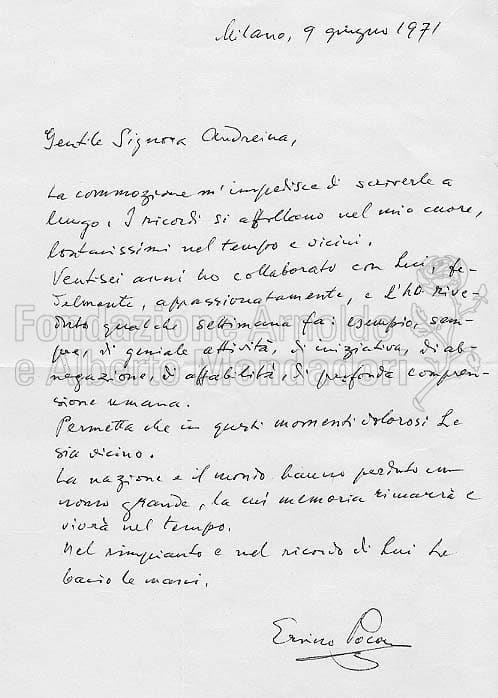 Milano, 9 giugno 1971
Gentile Signora Andreina,
La commozione m'impedisce di scriverle a
lungo. I ricordi si affollano nel mio cuore,
lontanissimi nel tempo e vicini.
Ventisei anni ho collaborato con Lui, fe-
delmente, appassionatamente, e L'ho rive-
duto qualche settimana fa: esempio, sem-
pre, di geniale attività, di iniziativa, di ab-
negazione, di affabilità, di profonda compren-
sione umana.
Permetta che in questi momenti dolorosi Le
sia vicino.
La nazione e il mondo hanno perduto un
uomo grande, la cui memoria rimarrà e
vivrà nel tempo.
Nel rimpianto e nel ricordo di Lui Le
bacio le mani.
Ervino Pocar
Fondazione Arnoldo
e Alberto Mondadori